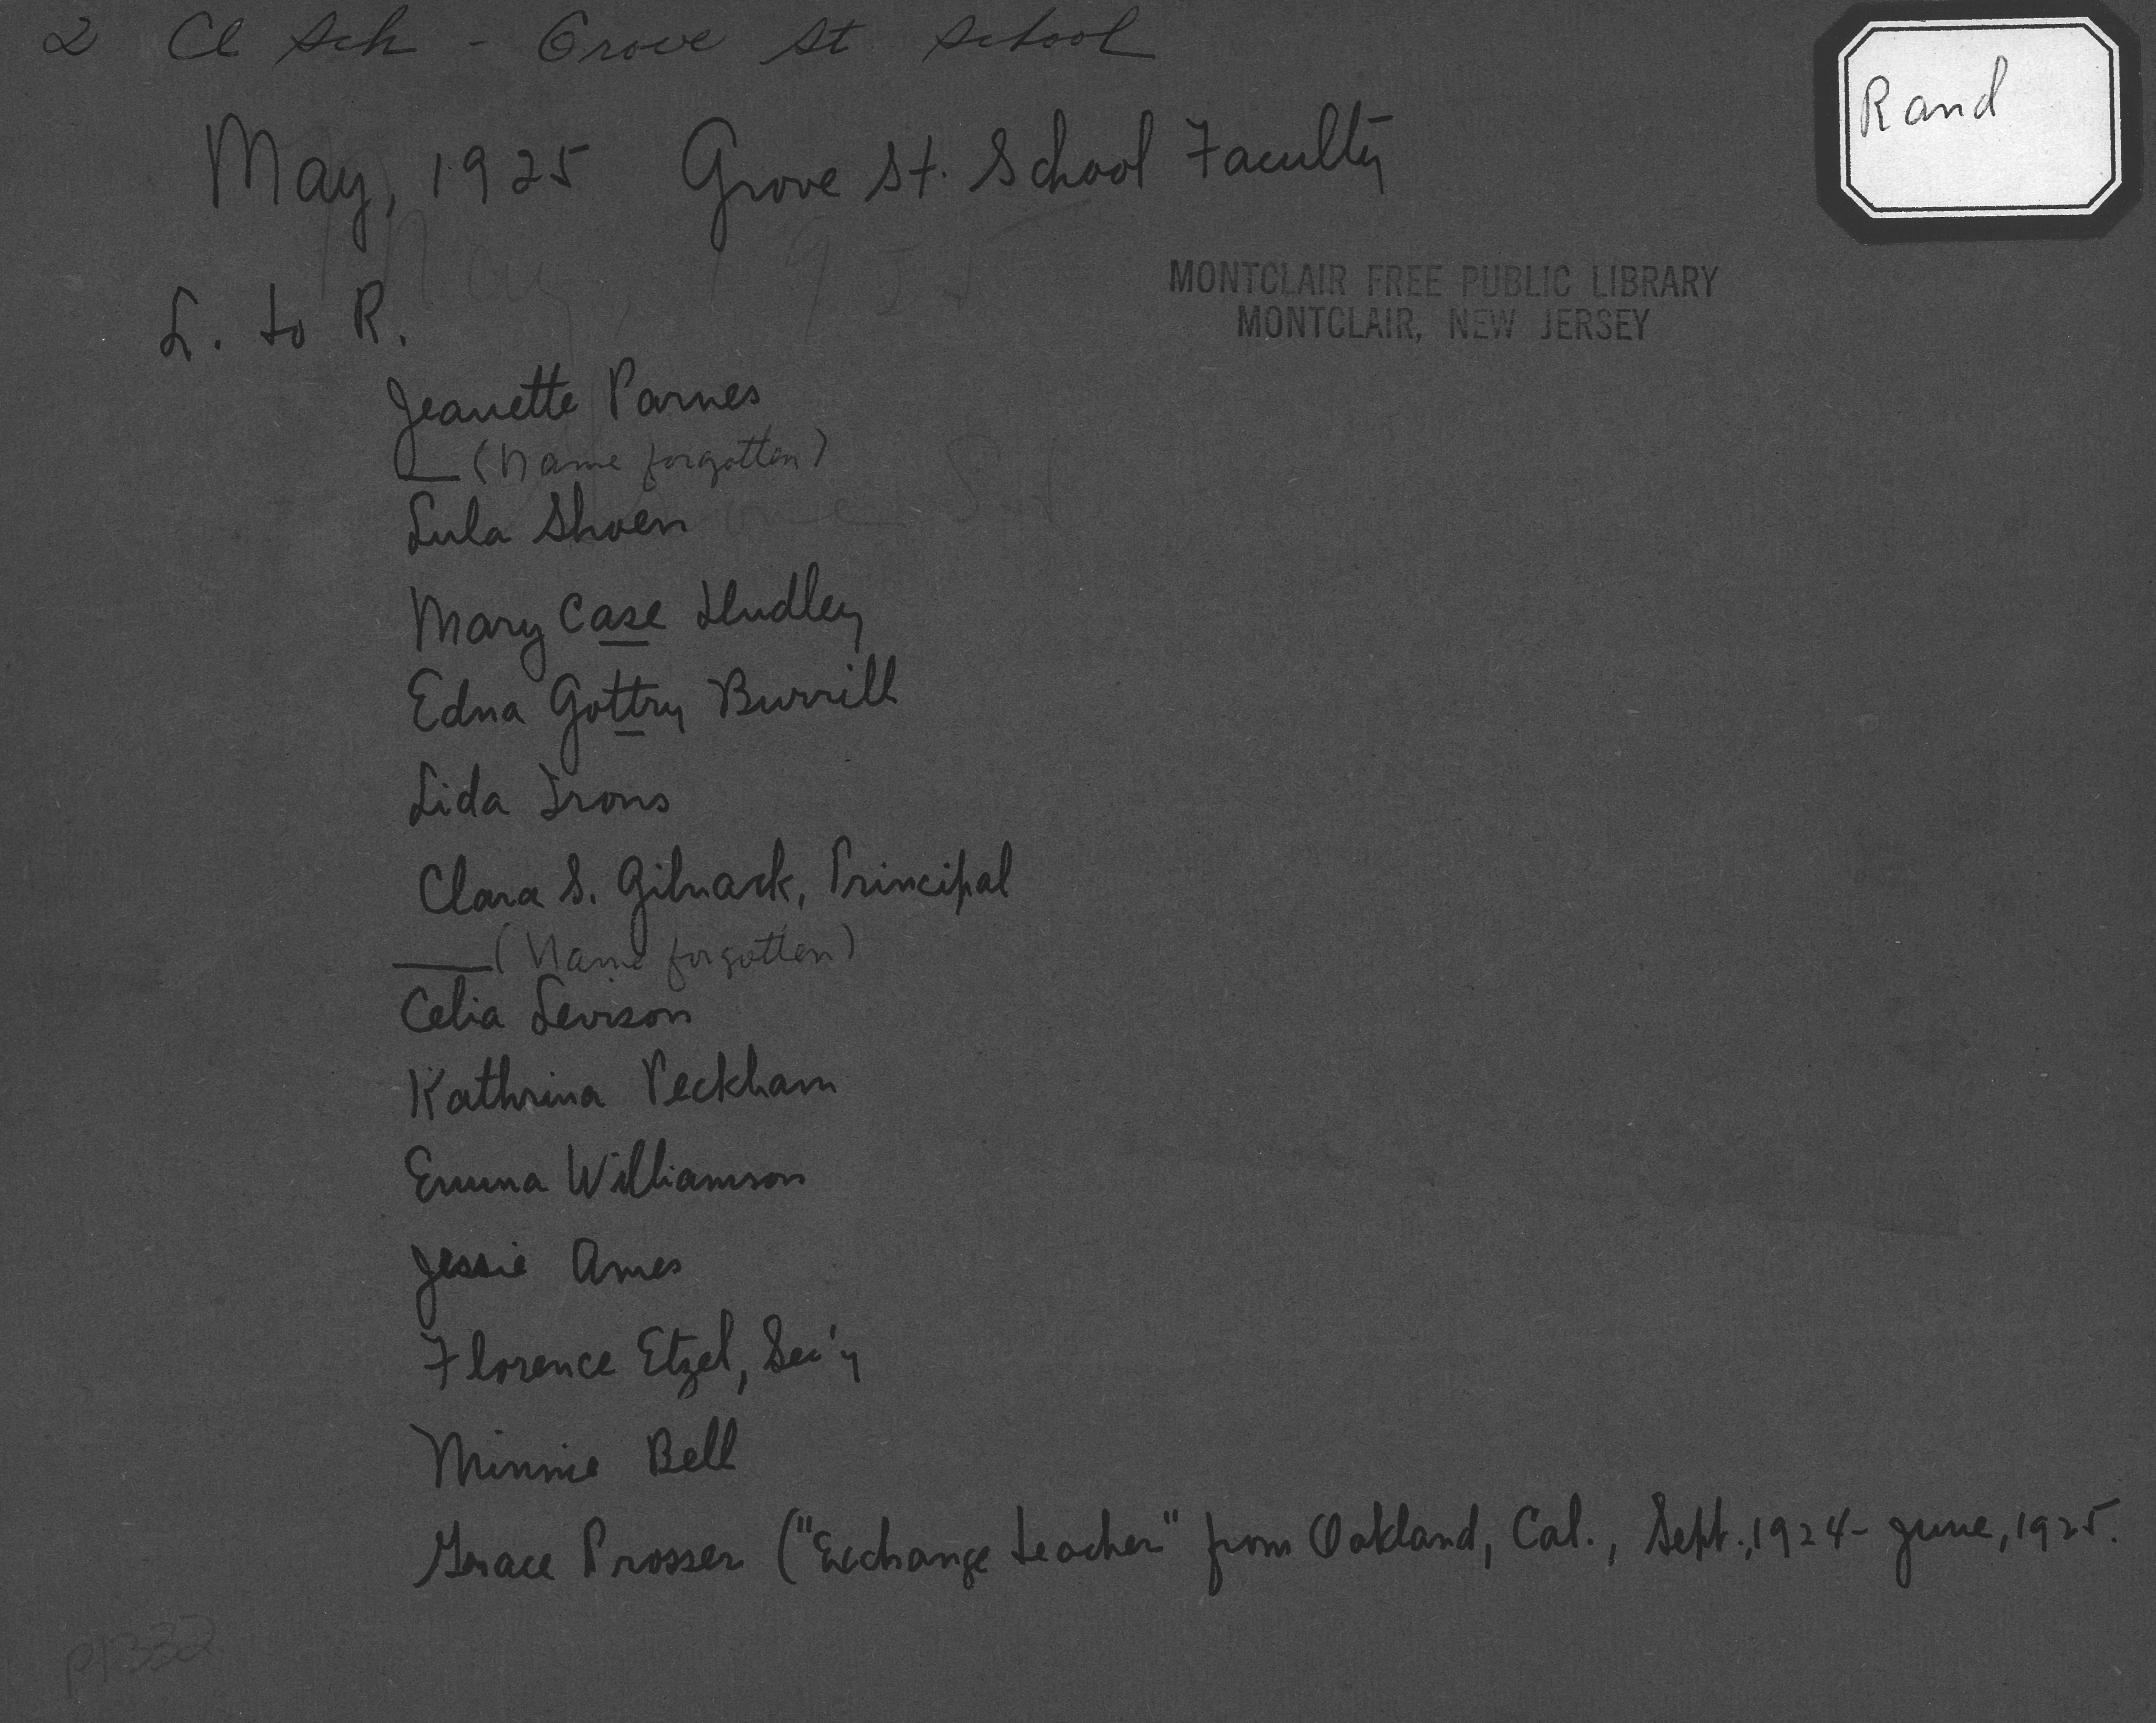 2 Cl Sch - Grove St School
Rand
May, 1925 Grove St. School Faculty
May, 1925
MONTCLAIR FREE PUBLIC LIBRARY
MONTCLAIR, NEW JERSEY
L. to R.
Jeanette Parnes
(Name forgotten)
Lula Shoen
St.
Mary Case
Edna Gottry Burrill
Lida Irons
Clara S. Gilnack, Principal
(Name forgotten)
Celia Levison
Kathrina Peckham
Emma Williamson
Jessie Ames
Florence Etzel, Sec'y
Minnie Bell
Grace Prosser ("Exchange teacher" from Oakland, Cal., Sept., 1924 - June, 1925.
p1332